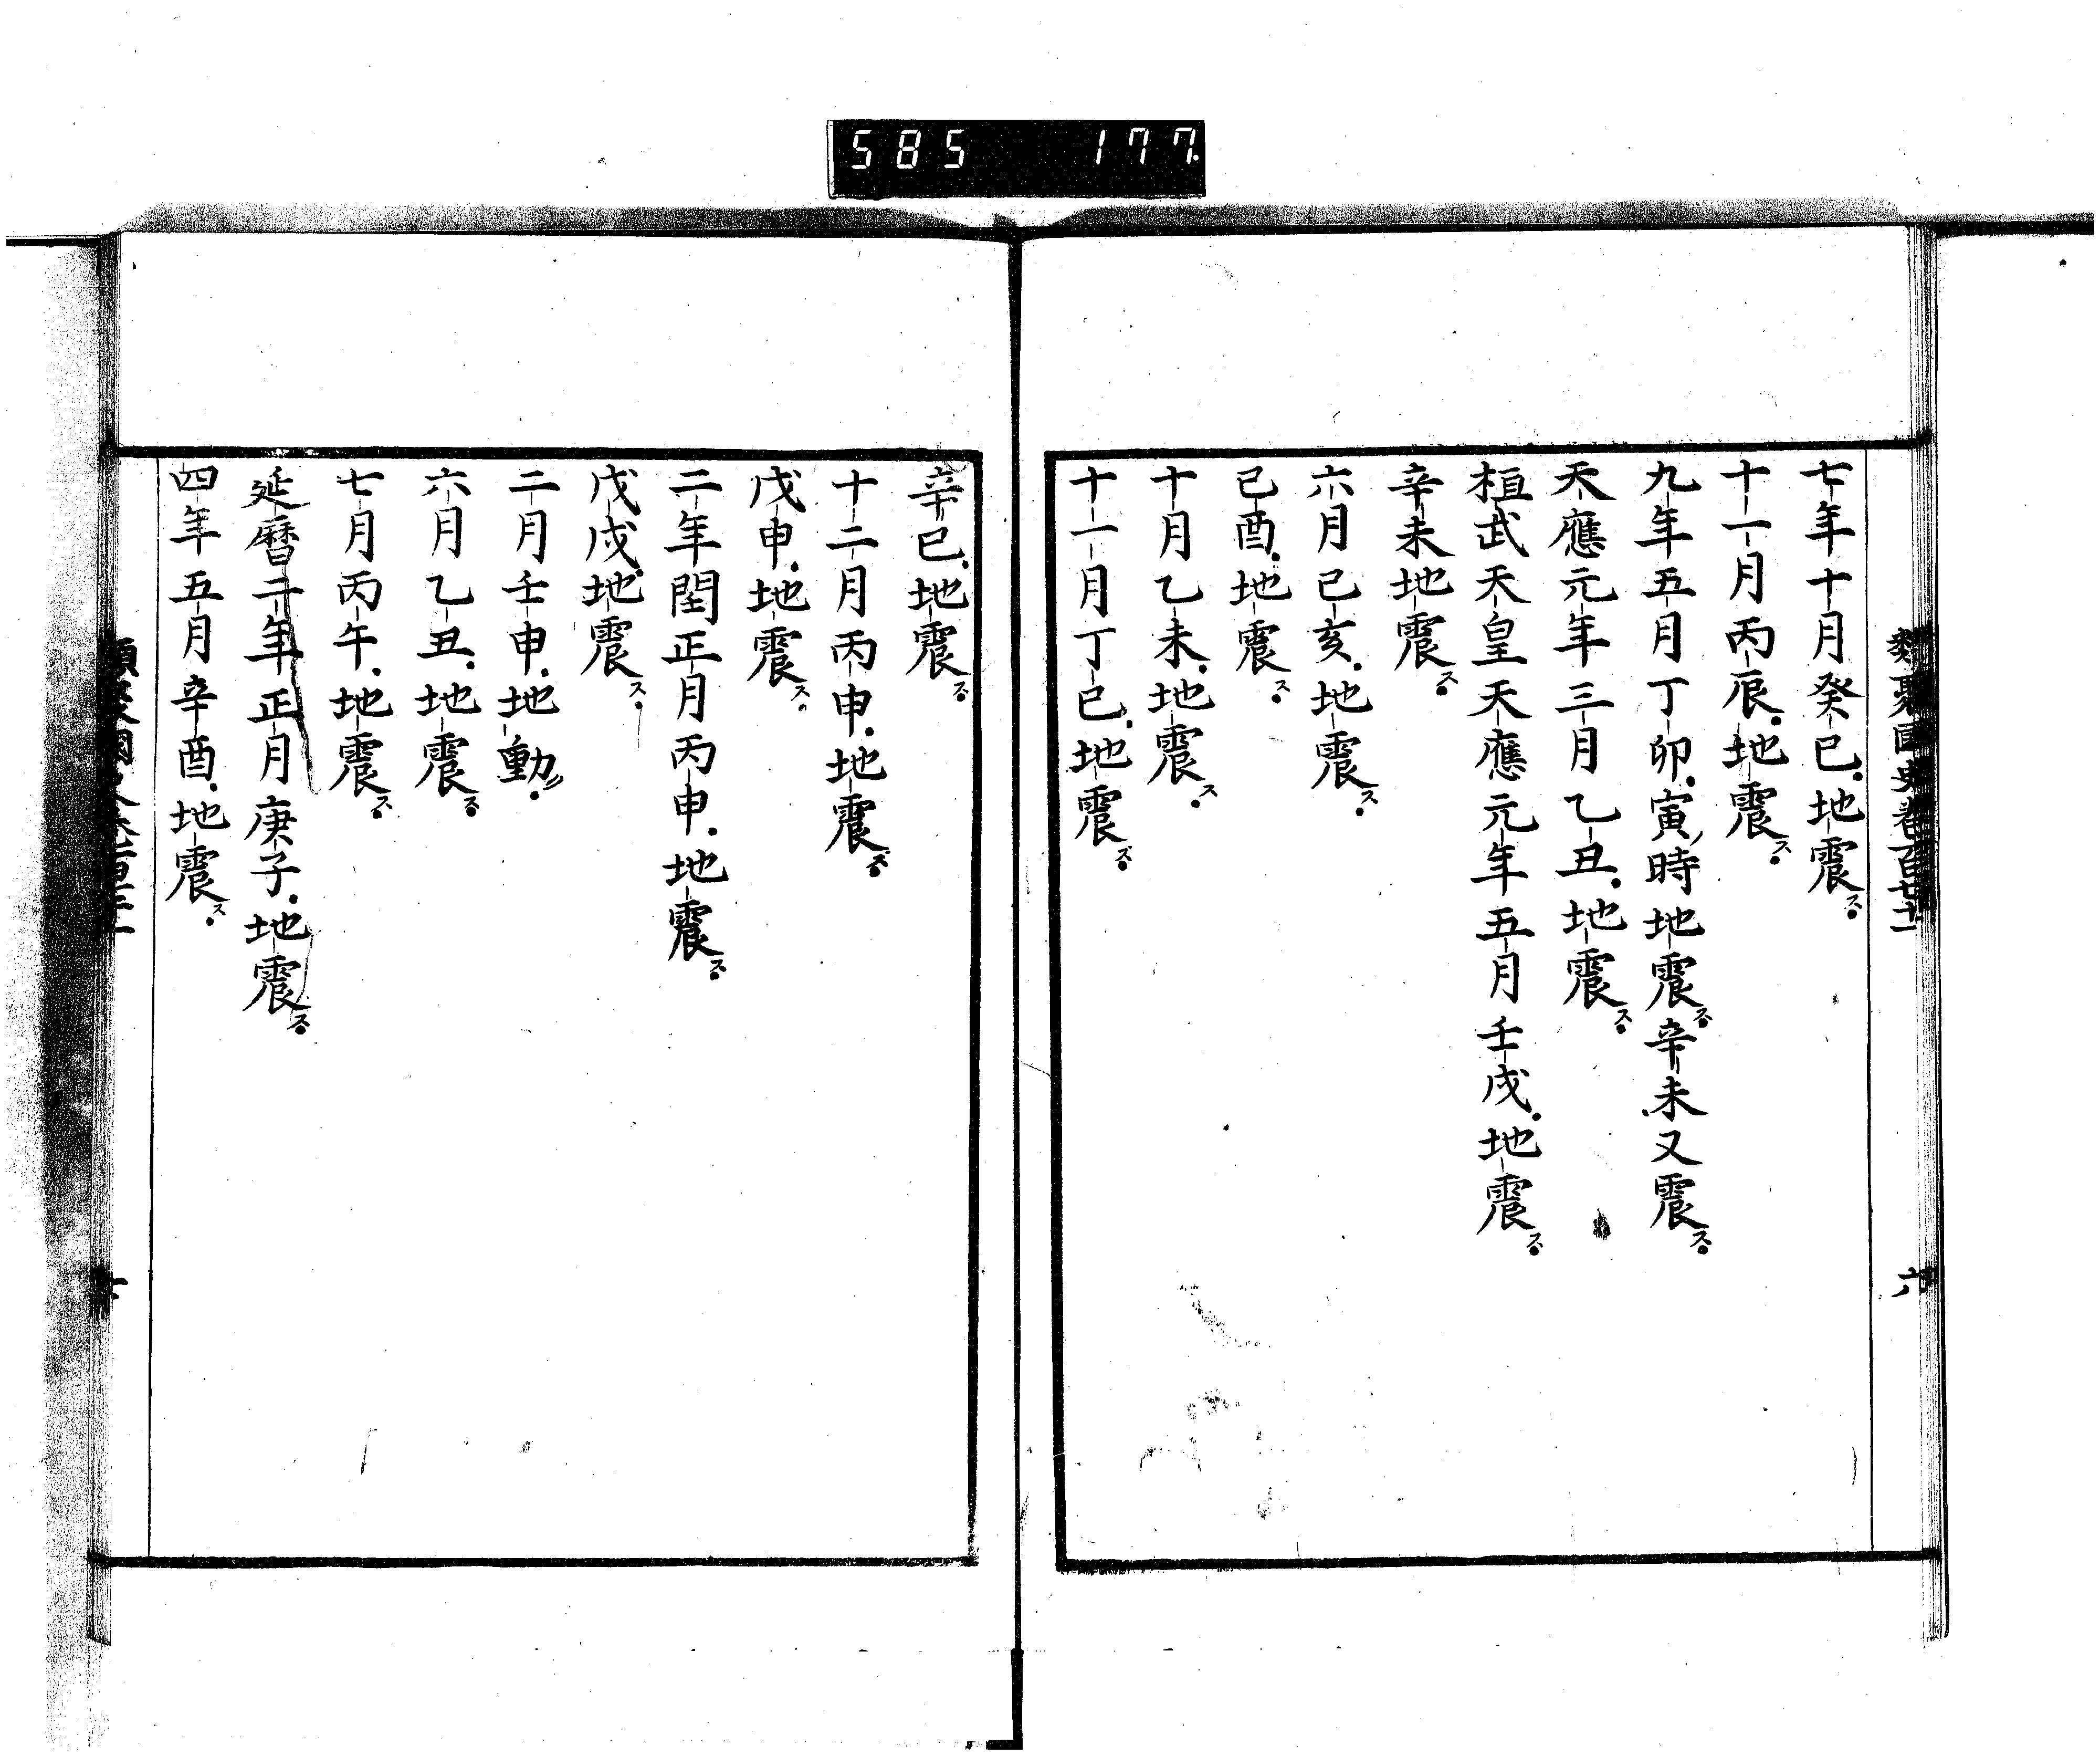 585 177
類聚國史卷百七十一
六
七年十月癸巳地震ス
十一月丙辰地震ス
九年五月丁卯寅時地震ス辛未又震ス
天應元年三月乙丑地震ス
桓武天皇天應元年五月壬戌地震ス
辛未地震ス
六月己亥地震ス
己酉地震ス
十月乙未地震ス
十一月丁巳地震ス
辛巳地震ス
十二月丙申地震ス
戊申地震ス
二年閏正月丙申地震ス
戊戌地震ス
二月壬申地動
六月乙丑地震ス
七月丙午地震ス
延曆二年正月庚子地震ス
四年五月辛酉地震ス